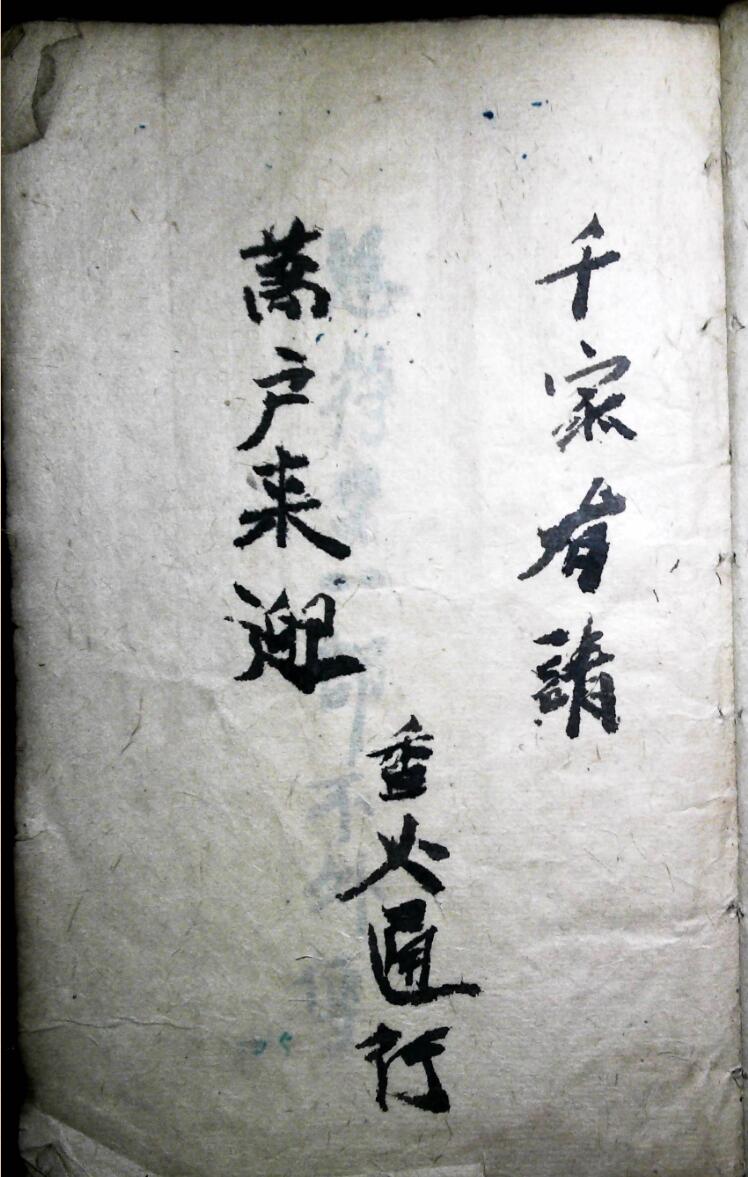 千家有請
萬户来迎
香火通行